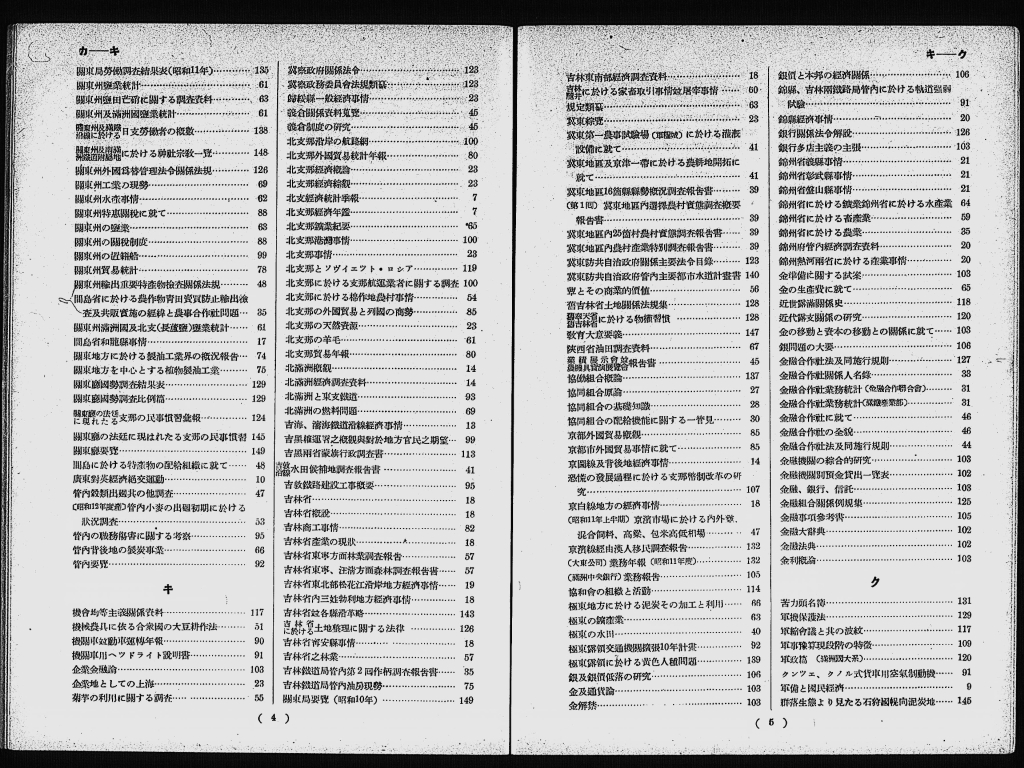 カ——キ
關東局勞働調査結果表(昭和11年)………135
關東州鹽業統計………61
關東州鹽田芒硝に關する調査資料………63
關東州及滿洲國鹽業統計………61
日支勞働者の概數………138
に於ける神社宗敎一覽………148
關東州外國爲替管理法令關係法規………126
關東州工業の現勢………69
關東州水產事情………62
關東州特惠關稅に就て………88
關東州の鹽業………63
關東州の關稅制度………88
關東州の置籍船………99
關東州貿易統計………78
關東州輸出重要特產物檢查關係法規………48
間島省に於ける農作物靑田賣買防止輸出強
査及共販實施の經緯と農事合作社問題…35
關東州滿洲國及北支(長蘆鹽)鹽業統計………61
間島省和龍縣事情………17
關東地方に於ける製油工業界の槪況報告…74
關東地方を中心とする植物製油工業………75
關東廳國勢調査結果表………129
關東廳國勢調査比例篇………129
關東廳の法廷に現れたる支那の民事慣習彙報………124
關東廳の法廷に現はれたる支那の民事慣習 145
關東廳要覽………149
間島に於ける特產物の配給組織に就て………48
廣東對英經濟絕交運動………10
管內穀類出廻其の他調査………47
(昭和12年度產)管內小麥の出廻初期に於ける
狀況調査………53
管內の職務傷害に關する考察………95
管內背後地の製炭事業………66
管內要覽………92
キ
機會均等主義關係資料………117
機械農具に依る合衆國の大豆耕作法………51
機關車竝動車運轉年報………90
機關車用ヘツドライト說明書………91
企業金融論………103
企業地としての上海………23
菊芋の利用に關する調査………55
冀察政府關係法令………123
冀察政務委員會法規類纂………123
歸綏縣一般經濟事情………23
義倉關係資料蒐覽………45
義倉制度の研究………45
北支那沿岸の航路網………100
北支那外國貿易統計年報………80
北支那經濟槪論………23
北支那經濟綜觀………23
北支經濟統計季報………7
北支那經濟年鑑………7
北支那鑛業紀要………65
北支那港灣事情………100
北支那事情………23
北支那とソヴイエツト・ロシア………119
北支那に於ける支那航運業者に關する調査 100
北支那に於ける棉作地農村事情………54
北支那の外國貿易と列國の商勢………85
北支那の天然資源………23
北支那の羊毛………61
北支那貿易年報………80
北滿洲槪觀………14
北滿洲經濟調査資料………14
北滿洲と東支鐵道………93
北滿洲の燃料問題………69
吉海、瀋海鐵道沿線經濟事情………13
吉黑榷運署之槪觀與對於地方官民之期望…99
吉黑兩省蒙旅行政調査書………113
吉敦沿線水田候補地調査報告書………41
吉敦鐵路建設工事槪要………95
吉林省………18
吉林省槪說………18
吉林商工事情………82
吉林省產業の現狀………18
吉林省東寧方面林業調査報告………57
吉林省東寧、汪淸方面森林調査報告………57
吉林省東北部松花江沿岸地方經濟事情………19
吉林省內三姓勃利地方經濟事情………18
吉林省竝各縣沿革略………143
吉林省に於ける土地整理に關する法律………126
吉林省寗安縣事情………18
吉林省之林業………57
吉林鐵道局管內第2回作柄調査報告………35
吉林鐵道局管內油房現勢………75
關東局要覽(昭和10年)………149
( 4 )
キ——ク
吉林東南部經濟調査資料………18
に於ける家畜取引事情竝屠宰事情………60
規定類纂………63
冀東綜覽………23
冀東第一農事試驗場(軍糧城)に於ける灌漑
設備に就て………41
冀東地區及京津一帶に於ける農耕地開拓に
就て………41
冀東地區16箇縣縣勢槪況調査報告書………39
(第1回)冀東地區內選擇農村實態調査槪要
報告書………39
冀東地區內25箇村農村實態調査報告書………39
冀東地區內農村產業特別調査報告書………39
冀東防共自治政府關係主要法令目錄………123
冀東防共自治政府管內主要都市水道計畫書 140
とその商業的價値………56
舊吉林省土地關係法規集………128
に於ける物權習慣………128
敎育大意要義………147
陝西省油田調査資料………67
報告書………45
協働組合槪論………137
協同組合原論………27
協同組合の基礎知識………28
協同組合の配給機能に關する一管見………30
京都外國貿易槪觀………85
京都市外國貿易事情に就て………85
京圖線及背後地經濟事情………14
恐慌の發展過程に於ける支那幣制改革の研
究………107
京白線地方の經濟事情………18
(昭和11年上半期)京濱市場に於ける內外麥、
混合飼料、高粱、包米高低相場………47
京濱松經由漢人移民調査報告………132
(大東公司)業務年報(昭和11年度)………132
(滿洲中央銀行)業務報告………105
協和會の組織と活動………114
極東地方に於ける泥炭その加工と利用………66
極東の鑛產業………63
極東の水田………40
極東露領交通機關擴張10年計畫………92
極東露領に於ける黃色人種問題………139
銀及銀價低落の研究………106
金及通貨論………103
金解禁………103
銀價と本邦の經濟關係………106
錦縣、吉林兩鐵路局管內に於ける軌道强弱
試驗………91
錦縣經濟事情………20
銀行關係法令解說………126
銀行多店主義の主張………103
錦州省義縣事情………21
錦州省彰武縣事情………21
錦州省盤山縣事情………21
錦州省に於ける鑛業錦州省に於ける水產業 64
錦州省に於ける畜產業………59
錦州省に於ける農業………35
錦州省管內經濟調査資料………20
錦州熱河兩省に於ける產業事情………20
金準備に關する試案………103
金の生產費に就て………65
近世露滿關係史………118
近代露支關係の研究………120
金の移動と資本の移動との關係に就て………103
銀問題の大要………106
金融合作社法及同施行規則………127
金融合作社關係人名錄………33
金融合作社業務統計(金融合作社聯合會)………31
金融合作社業務統計(滿鐵產業部)………31
金融合作社に就て………46
金融合作社の全貌………46
金融合作社法及同施行規則………44
金融機關の綜合的硏究………103
金融機關別預金貸出一覽表………102
金融、銀行、信託………103
金融組合關係例規集………125
金融事項參考書………105
金融大辭典………102
金融法典………102
金利槪論………103
ク
苦力頭名簿………131
軍機保護法………129
軍縮會議と其の波紋………117
軍事豫算現段階の特徵………109
軍政篇 (滿洲國大系)………120
クンツェ、クノル式貨車用空氣制動機………91
軍備と國民經濟………9
群落生態より見たる石狩國幌向泥炭地………145
( 5 )